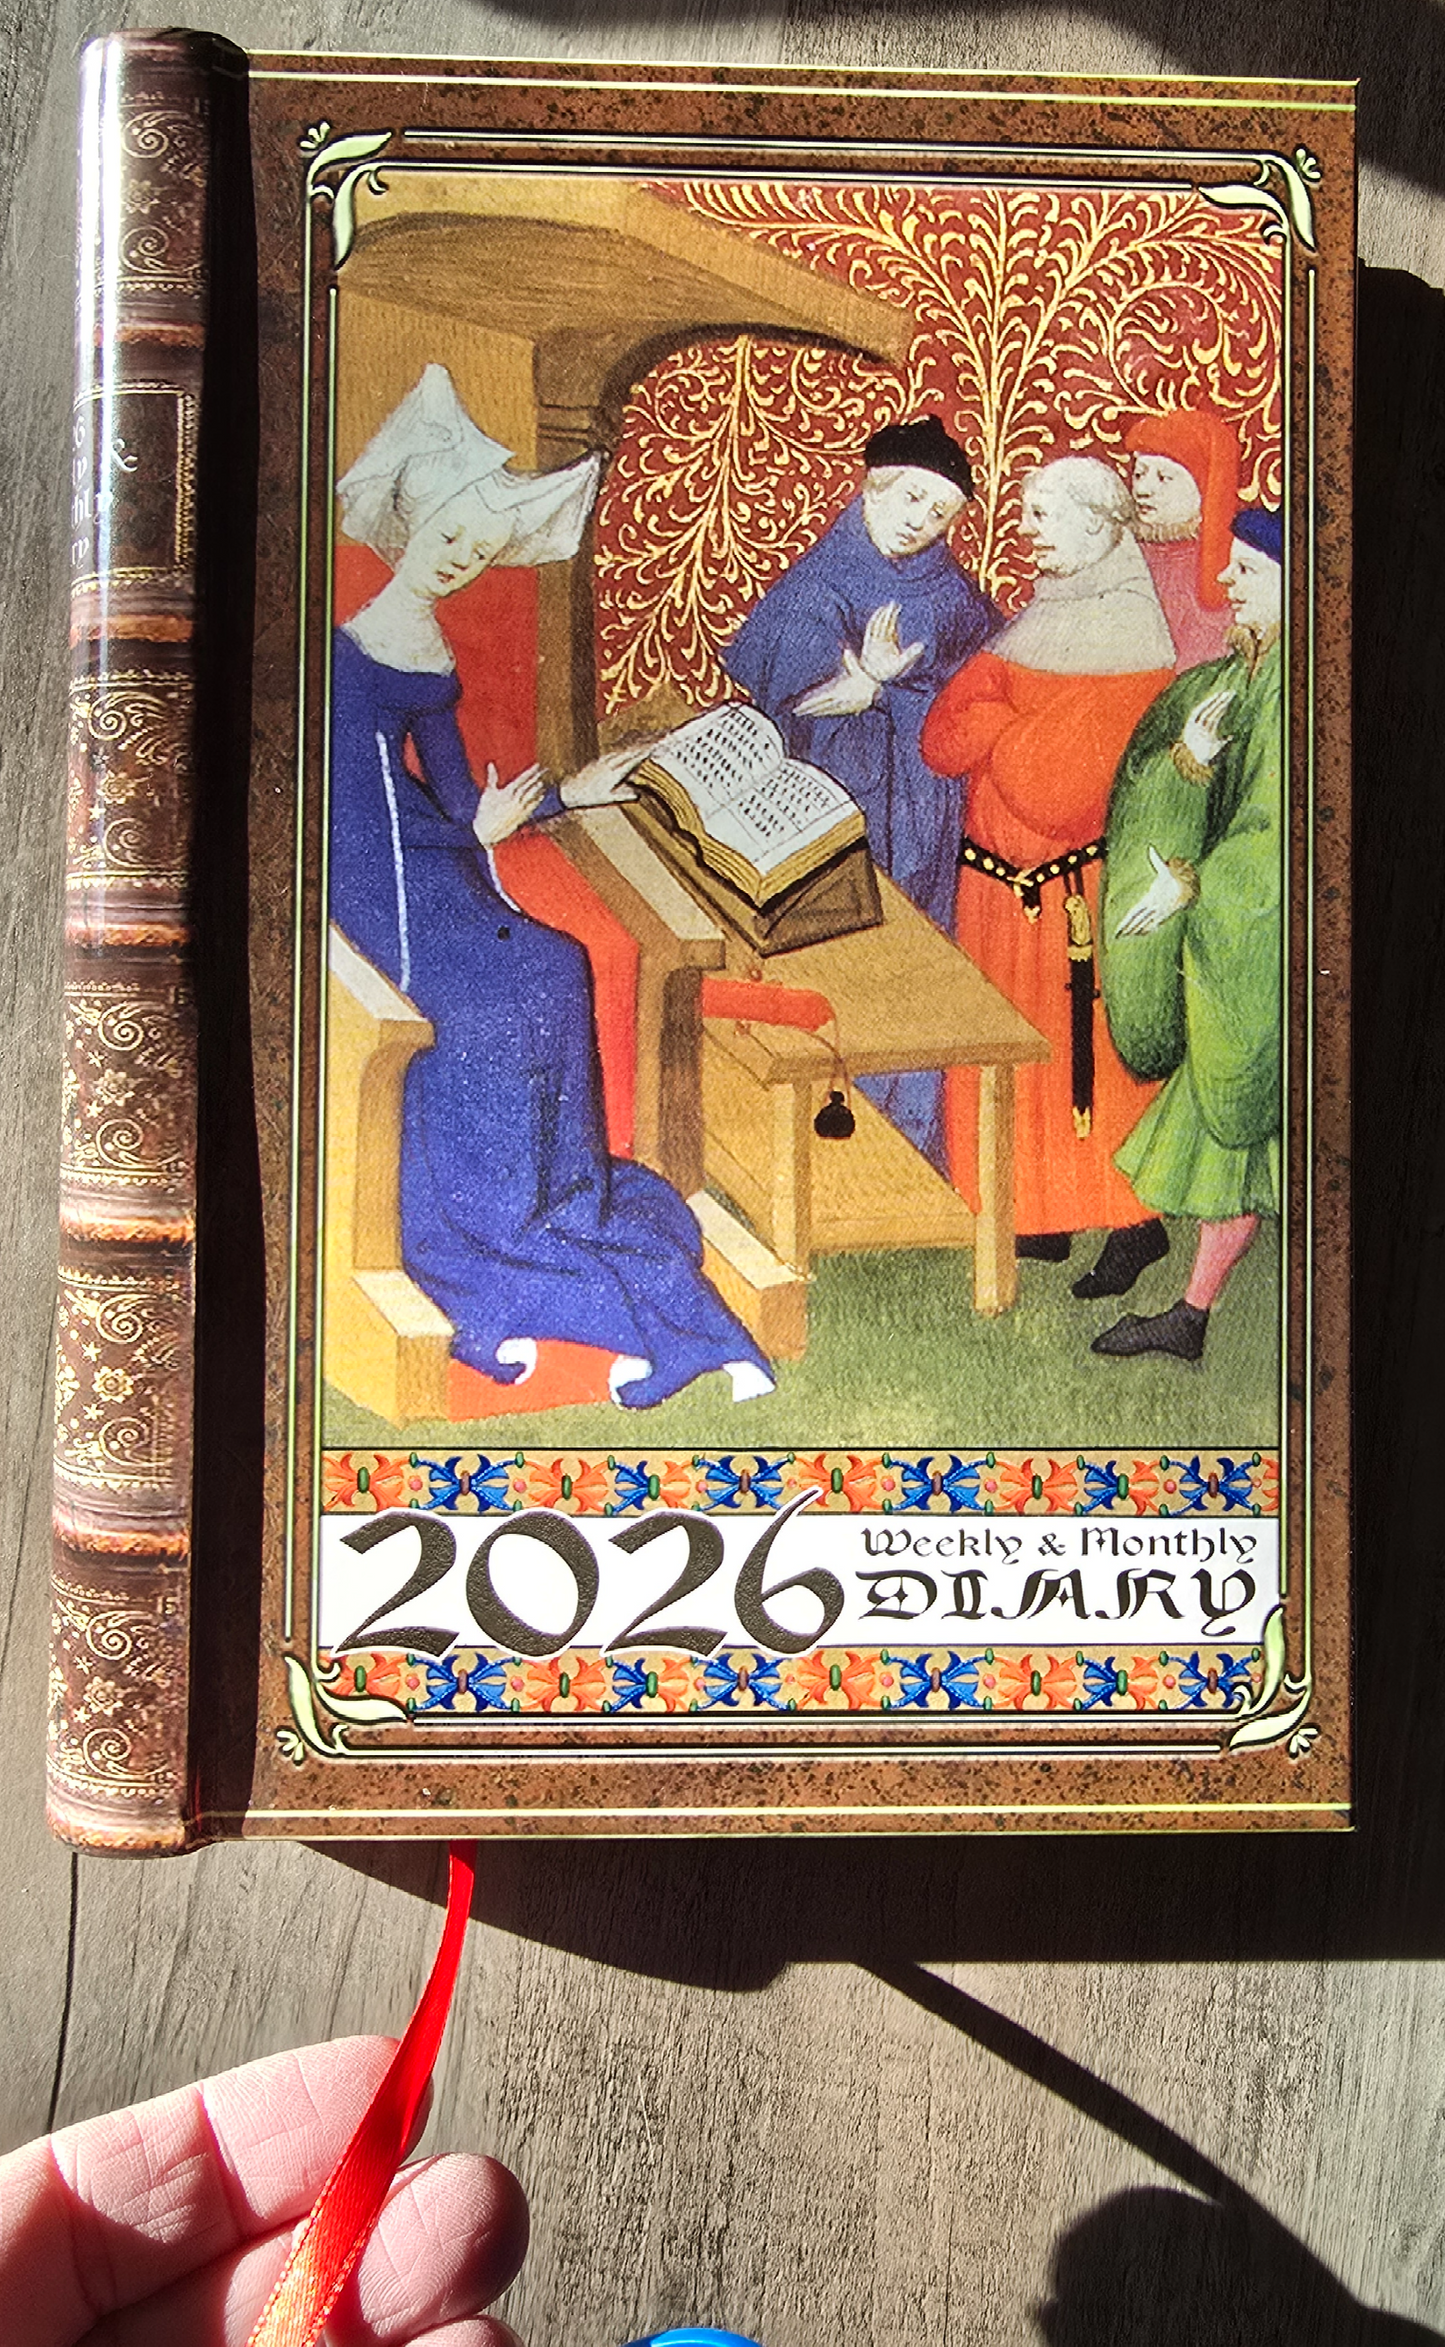 &
2026
Weekly & Monthly
DIARY